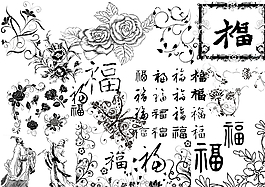 福
福
福
福
福 福 福 福
福 福 福 福
福 福 福 福
福 福 福 福
福
福
福
福 福
福